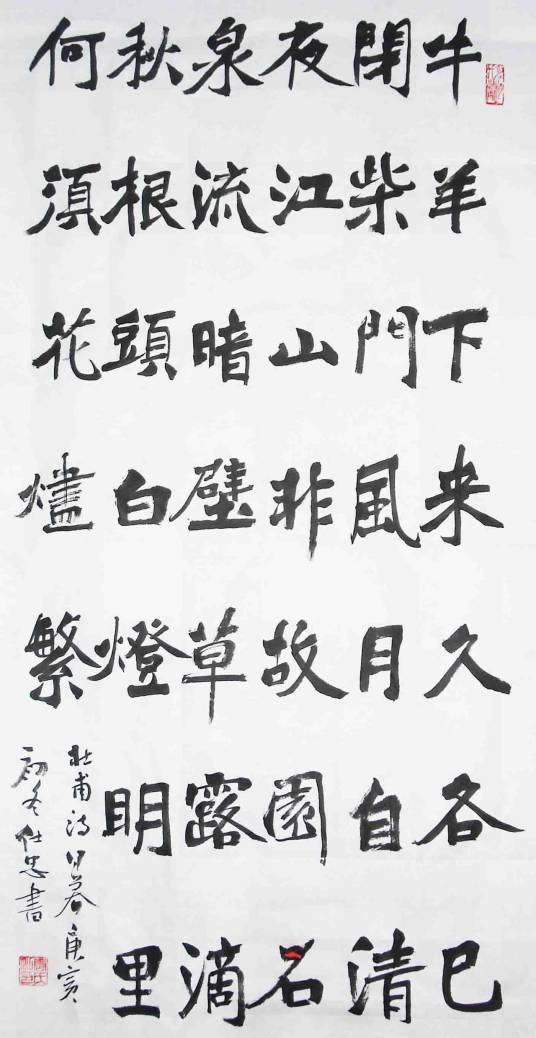 牛羊下来久各已
閉柴門風月自清
夜江山非故園石
泉流暗壁草露滴
秋根頭白燈明里
何須花燼繁
杜甫詩日暮庚寅
初冬仕忠書